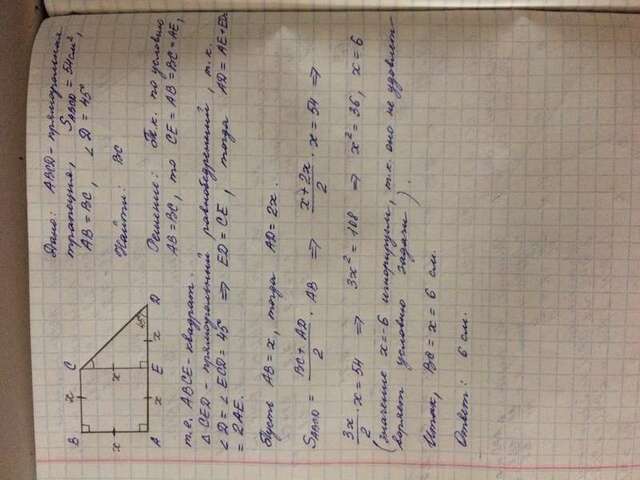 Дано: ABCD - прямоугольная
трапеция, SABCD = 54 см²,
AB = BC, ∠D = 45°
Найти: BC
Решение: т.к. по условию
AB = BC, то CE = AB = BC = AE,
B
C
x
x
x
45°
A
x
E
x
D
т.е. ABCE - квадрат.
△CED - прямоугольный равнобедренный, т.к.
∠D = ∠ECD = 45° ⇒ ED = CE, тогда AD = AE + ED
= 2AE.
Пусть AB = x, тогда AD = 2x.
SABCD = (BC + AD)/2 · AB ⇒ (x + 2x)/2 · x = 54 ⇒
3x/2 · x = 54 ⇒ 3x² = 108 ⇒ x² = 36, x = 6
(значение x = -6 игнорируем, т.к. оно не удовлет-
воряет условию задачи).
Итак, BC = x = 6 см.
Ответ: 6 см.